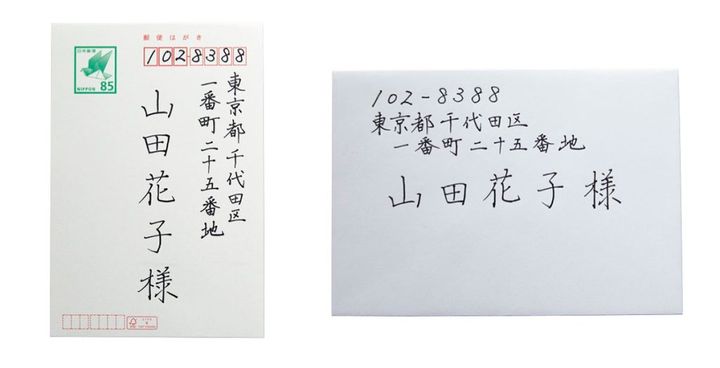 郵便はがき
日本郵便
NIPPON 85
1028388
東京都千代田区
一番町二十五番地
山田花子様
102-8388
東京都千代田区
一番町二十五番地
山田花子様